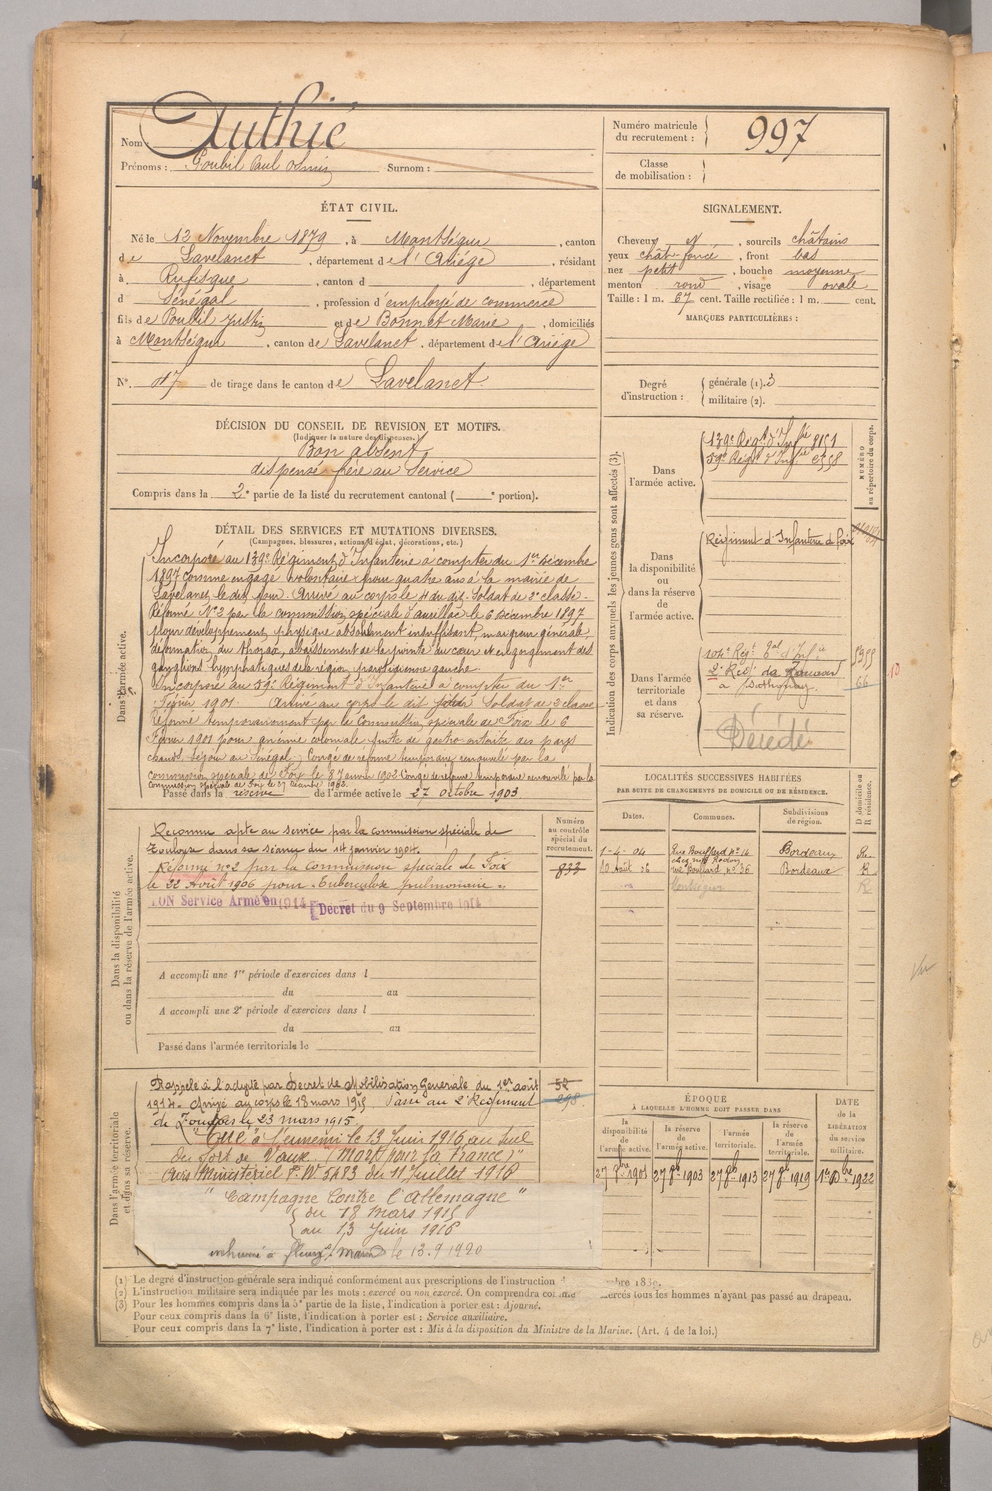 Nom : Authié
Prénoms : Paul Surnom :
Numéro matricule du recrutement : 997
Classe de mobilisation :
ÉTAT CIVIL.
Né le 12 Novembre 1879, à Montségur, canton
de Lavelanet, département de l'Ariège, résidant
à Rufisque, canton d , département
d Sénégal, profession d employé de commerce
fils de Poubil Justin et de Bonnet Marie, domiciliés
à Montségur, canton de Lavelanet, département de l'Ariège
N°. 47 de tirage dans le canton de Lavelanet
SIGNALEMENT.
Cheveux , sourcils châtains
yeux chât. foncé, front bas
nez petit, bouche moyenne
menton rond, visage ovale
Taille : 1 m. 67 cent. Taille rectifiée : 1 m. cent.
MARQUES PARTICULIÈRES :
Degré d'instruction : générale (1). 3
militaire (2).
DÉCISION DU CONSEIL DE RÉVISION ET MOTIFS.
(Indiquer la nature des dispenses.)
Bon absent
dispensé frère au service
Compris dans la 2e partie de la liste du recrutement cantonal ( e portion).
DÉTAIL DES SERVICES ET MUTATIONS DIVERSES.
(Campagnes, blessures, actions d'éclat, décorations, etc.)
Dans l'armée active.
Incorporé au 139e Régiment d'Infanterie à compter du 1er décembre
1897 comme engagé volontaire pour quatre ans à la mairie de
Lavelanet le dit jour. Arrivé au corps le 4 du dit. Soldat de 2e classe.
Réformé N°2 par la commission spéciale d'Aurillac le 6 décembre 1897
pour développement physique absolument insuffisant, maigreur générale,
déformation du thorax, abaissement de la pointe au cœur et engorgement des
ganglions lymphatiques de la région parotidienne gauche.
Incorporé au 59e Régiment d'Infanterie à compter du 1er
Février 1901. Arrivé au corps le dit jour. Soldat de 2e classe
Réformé temporairement par la Commission spéciale de Foix le 6
Février 1901 pour anémie coloniale suite de gastro-entérite des pays
chauds séjour au Sénégal. Congé de réforme temporaire renouvelé par la
commission spéciale de Foix le 8 Janvier 1902 Congé de réforme temporaire renouvelé par la
commission spéciale de Foix le 27
Passé dans la réserve de l'armée active le 27 octobre 1903
Indication des corps auxquels les jeunes gens sont affectés (3).
NUMÉRO au répertoire du corps.
Dans l'armée active.
139e Régt d'Infie 8151
59e Régt d'Infie
Dans la disponibilité ou dans la réserve de l'armée active.
Régiment d'Infanterie de Foix
Dans l'armée territoriale et dans sa réserve.
104e Regt d'Infie 5955
2e Régt de Zouaves 66
10
à
Décédé
LOCALITÉS SUCCESSIVES HABITÉES
PAR SUITE DE CHANGEMENTS DE DOMICILE OU DE RÉSIDENCE.
D domicile ou R résidence.
Dates. Communes. Subdivisions de région.
1-4-04 Rue n° 16 Bordeaux R.
10 Août 06 rue n° 36 Bordeaux R
Montségur R
Dans la disponibilité ou dans la réserve de l'armée active.
Numéro au contrôle spécial du recrutement.
833
Reconnu apte au service par la commission spéciale de
Toulouse dans sa séance du 14 janvier 1904.
Réformé n°2 par la commission spéciale de Foix
le 22 Août 1906 pour "tuberculose pulmonaire"
BON Service Armé en 1914 Décret du 9 Septembre 1914
A accompli une 1re période d'exercices dans l
du au
A accompli une 2e période d'exercices dans l
du au
Passé dans l'armée territoriale le
Dans l'armée territoriale et dans sa réserve.
52
298
Rappelé à l'activité par Décret de Mobilisation Générale du 1er août
1914. Arrivé au corps le 18 mars 1915 Passé au 2e Régiment
de Zouaves le 23 mars 1915
"Tué" à l'ennemi le 13 Juin 1916 au Sud
du fort de Vaux. (Mort pour la France)"
Avis Ministériel F.W 5483 du 11 Juillet 1916
"Campagne Contre l'Allemagne"
du 18 mars 1915
au 13 Juin 1916
inhumé à le 13.9.1920
ÉPOQUE
À LAQUELLE L'HOMME DOIT PASSER DANS
la disponibilité de l'armée active.
la réserve de l'armée active.
l'armée territoriale.
la réserve de l'armée territoriale.
DATE de la LIBÉRATION du service militaire.
27 8bre 1901 27 8b 1903 27 8b 1913 27 8b 1919 1er Dbre 1922
Vu
(1) Le degré d'instruction générale sera indiqué conformément aux prescriptions de l'instruction
(2) L'instruction militaire sera indiquée par les mots : exercé ou non exercé. On comprendra comme exercés tous les hommes n'ayant pas passé au drapeau.
(3) Pour les hommes compris dans la 5e partie de la liste, l'indication à porter est : Ajourné.
Pour ceux compris dans la 6e liste, l'indication à porter est : Service auxiliaire.
Pour ceux compris dans la 7e liste, l'indication à porter est : Mis à la disposition du Ministre de la Marine. (Art. 4 de la loi.)